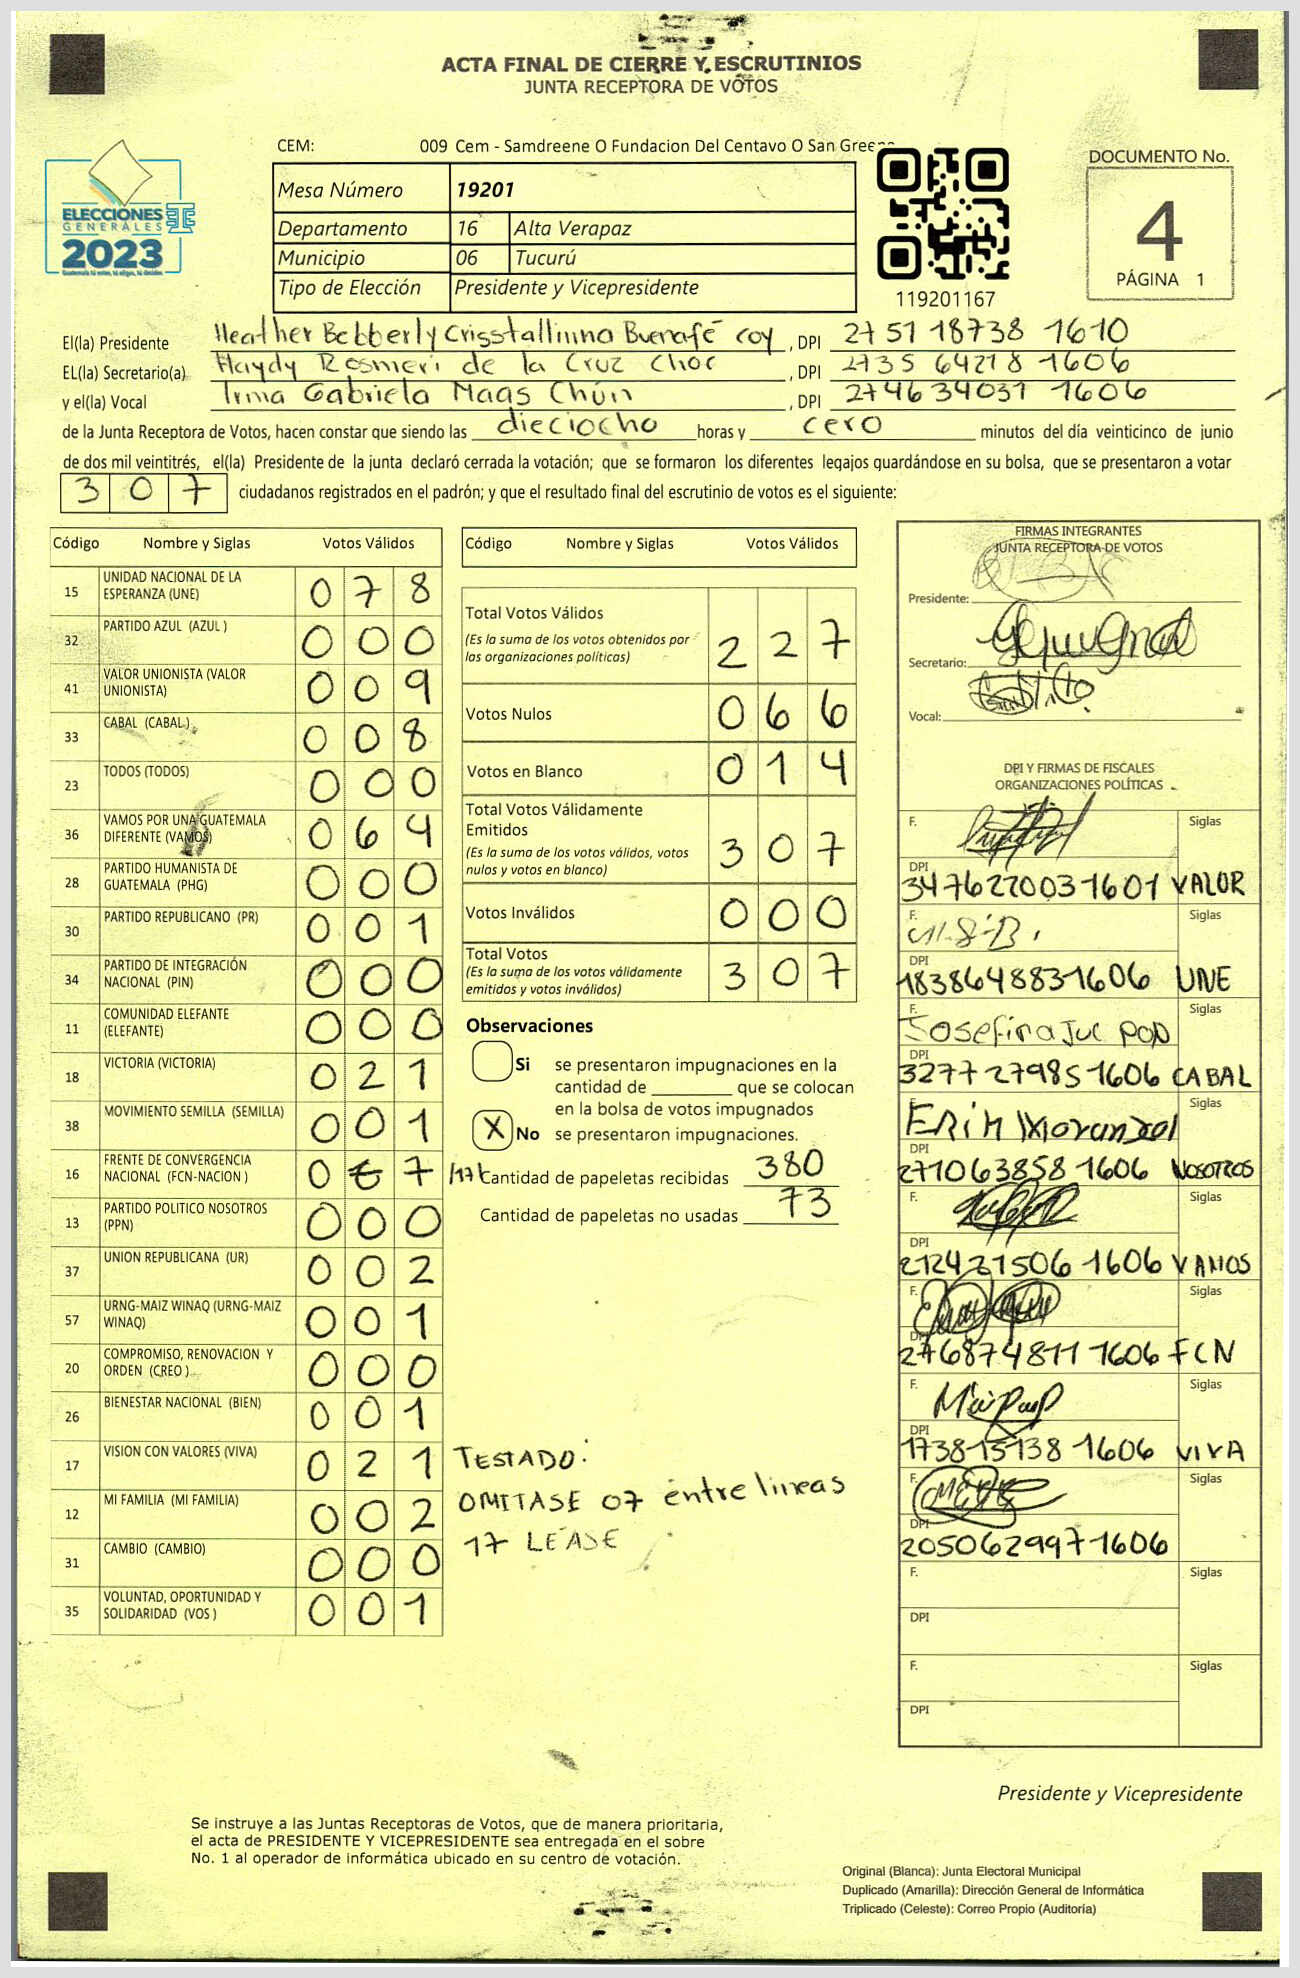 ACTA FINAL DE CIERRE Y ESCRUTINIOS
JUNTA RECEPTORA DE VOTOS
CEM: 009 Cem - Samdreene O Fundacion Del Centavo O San Greene
ELECCIONES
GENERALES
2023
Mesa Número 19201
Departamento 16 Alta Verapaz
Municipio 06 Tucurú
Tipo de Elección Presidente y Vicepresidente
119201167
DOCUMENTO No.
4
PÁGINA 1
El(la) Presidente Heather Bebberly Crisstallinna Buenafé Coy, DPI 2751 18738 1610
EL(la) Secretario(a) Haydy Rosmeri de la Cruz Choc, DPI 2735 64218 1606
y el(la) Vocal Irma Gabriela Maas Chún, DPI 2746 34031 1606
de la Junta Receptora de Votos, hacen constar que siendo las dieciocho horas y cero minutos del día veinticinco de junio
de dos mil veintitrés, el(la) Presidente de la junta declaró cerrada la votación; que se formaron los diferentes legajos guardándose en su bolsa, que se presentaron a votar
307 ciudadanos registrados en el padrón; y que el resultado final del escrutinio de votos es el siguiente:
Código Nombre y Siglas Votos Válidos
15 UNIDAD NACIONAL DE LA ESPERANZA (UNE) 078
32 PARTIDO AZUL (AZUL ) 000
41 VALOR UNIONISTA (VALOR UNIONISTA) 009
33 CABAL (CABAL ) 008
23 TODOS (TODOS) 000
36 VAMOS POR UNA GUATEMALA DIFERENTE (VAMOS) 064
28 PARTIDO HUMANISTA DE GUATEMALA (PHG) 000
30 PARTIDO REPUBLICANO (PR) 001
34 PARTIDO DE INTEGRACIÓN NACIONAL (PIN) 000
11 COMUNIDAD ELEFANTE (ELEFANTE) 000
18 VICTORIA (VICTORIA) 021
38 MOVIMIENTO SEMILLA (SEMILLA) 001
16 FRENTE DE CONVERGENCIA NACIONAL (FCN-NACION ) 0 7 /17/
13 PARTIDO POLITICO NOSOTROS (PPN) 000
37 UNION REPUBLICANA (UR) 002
57 URNG-MAIZ WINAQ (URNG-MAIZ WINAQ) 001
20 COMPROMISO, RENOVACION Y ORDEN (CREO ) 000
26 BIENESTAR NACIONAL (BIEN) 001
17 VISION CON VALORES (VIVA) 021
12 MI FAMILIA (MI FAMILIA) 002
31 CAMBIO (CAMBIO) 000
35 VOLUNTAD, OPORTUNIDAD Y SOLIDARIDAD (VOS ) 001
Código Nombre y Siglas Votos Válidos
Total Votos Válidos 227
(Es la suma de los votos obtenidos por
las organizaciones políticas)
Votos Nulos 066
Votos en Blanco 014
Total Votos Válidamente
Emitidos 307
(Es la suma de los votos válidos, votos
nulos y votos en blanco)
Votos Inválidos 000
Total Votos 307
(Es la suma de los votos válidamente
emitidos y votos inválidos)
Observaciones
Si se presentaron impugnaciones en la
cantidad de ________ que se colocan
en la bolsa de votos impugnados
X No se presentaron impugnaciones.
Cantidad de papeletas recibidas 380
Cantidad de papeletas no usadas 73
TESTADO:
OMITASE 07 entre lineas
17 LEASE
FIRMAS INTEGRANTES
JUNTA RECEPTORA DE VOTOS
Presidente:
Secretario:
Vocal:
DPI Y FIRMAS DE FISCALES
ORGANIZACIONES POLÍTICAS
F. Siglas
DPI 3476220031601 VALOR
F. Siglas
DPI 1838648831606 UNE
F. Josefina Juc pop Siglas
DPI 3277279851606 CABAL
F. Siglas
DPI 2710638581606 NOSOTROS
F. Siglas
DPI 2124215061606 VAMOS
F. Siglas
DPI 2768748111606 FCN
F. Siglas
DPI 1738151381606 VIVA
F. Siglas
DPI 2050629971606
F. Siglas
DPI
F. Siglas
DPI
Presidente y Vicepresidente
Se instruye a las Juntas Receptoras de Votos, que de manera prioritaria,
el acta de PRESIDENTE Y VICEPRESIDENTE sea entregada en el sobre
No. 1 al operador de informática ubicado en su centro de votación.
Original (Blanca): Junta Electoral Municipal
Duplicado (Amarilla): Dirección General de Informática
Triplicado (Celeste): Correo Propio (Auditoría)